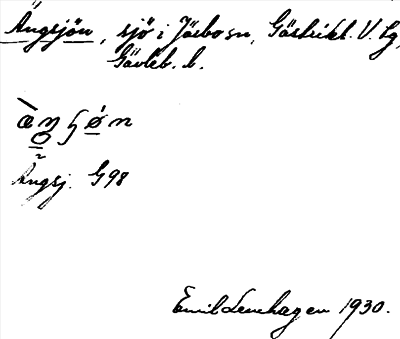 Ängsjön, sjö i Järbo sn, Gästrikl. V. Lg,
Gävleb. l.
Ängsj. G98
Emil Lenhagen 1930.